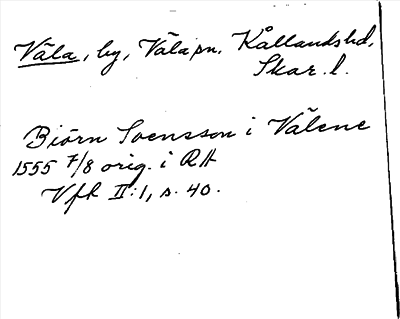 Väla, by, Väla sn. Kållands hd,
Skar. l.
Biörn Svensson i Välene
1555 7/8 orig. i RA
Vfh II:1, s. 40.